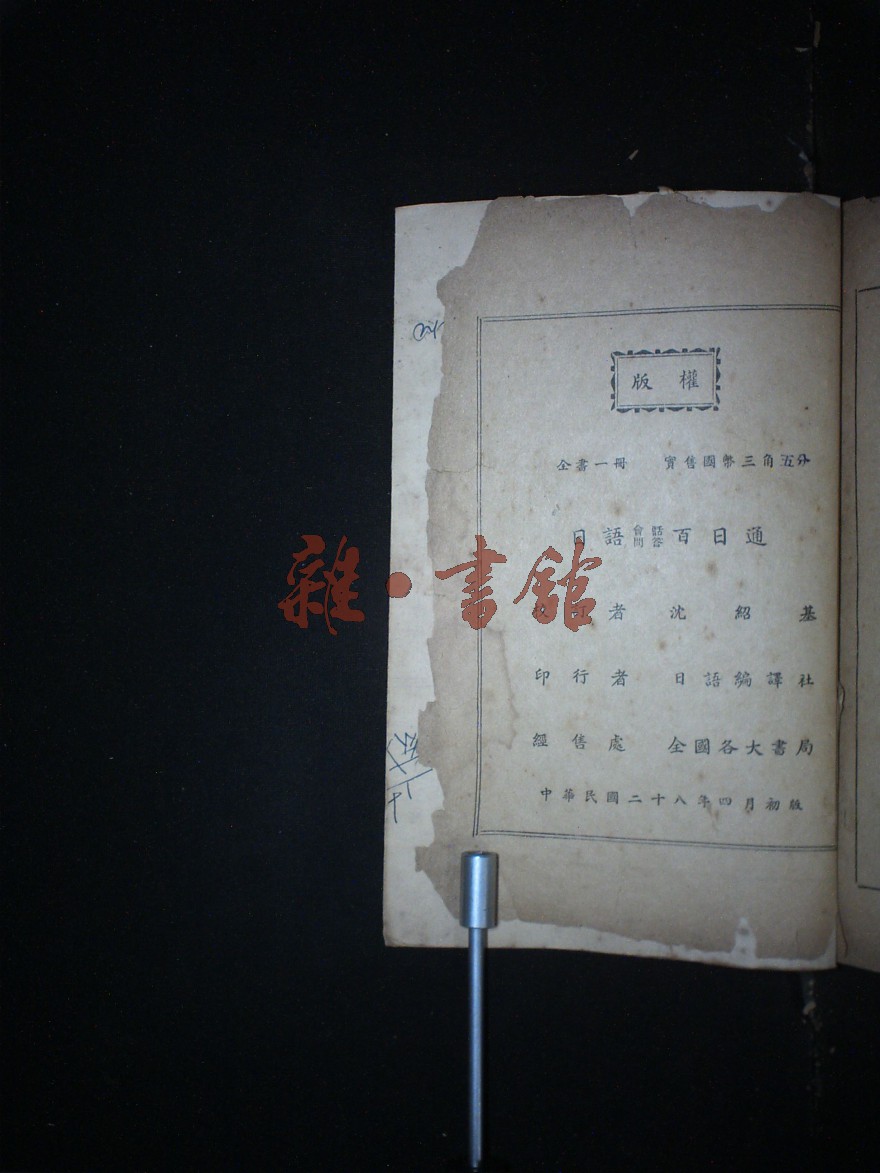 版權
全書一冊 實售國幣三角五分
日語會話問答百日通
者 沈紹基
印行者 日語編譯社
經售處 全國各大書局
中華民國二十八年四月初版
雜·書館